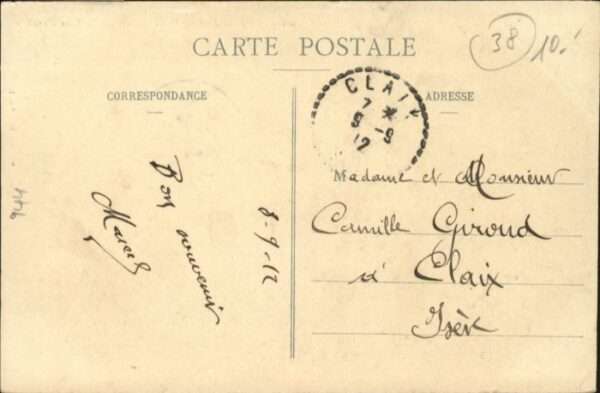 CARTE POSTALE
38
10.-
CORRESPONDANCE
ADRESSE
CLAIX
7
9 -9
12
Bon souvenir
Marcel
8-9-12
Madame et Monsieur
Camille Giroud
à Claix
Isère